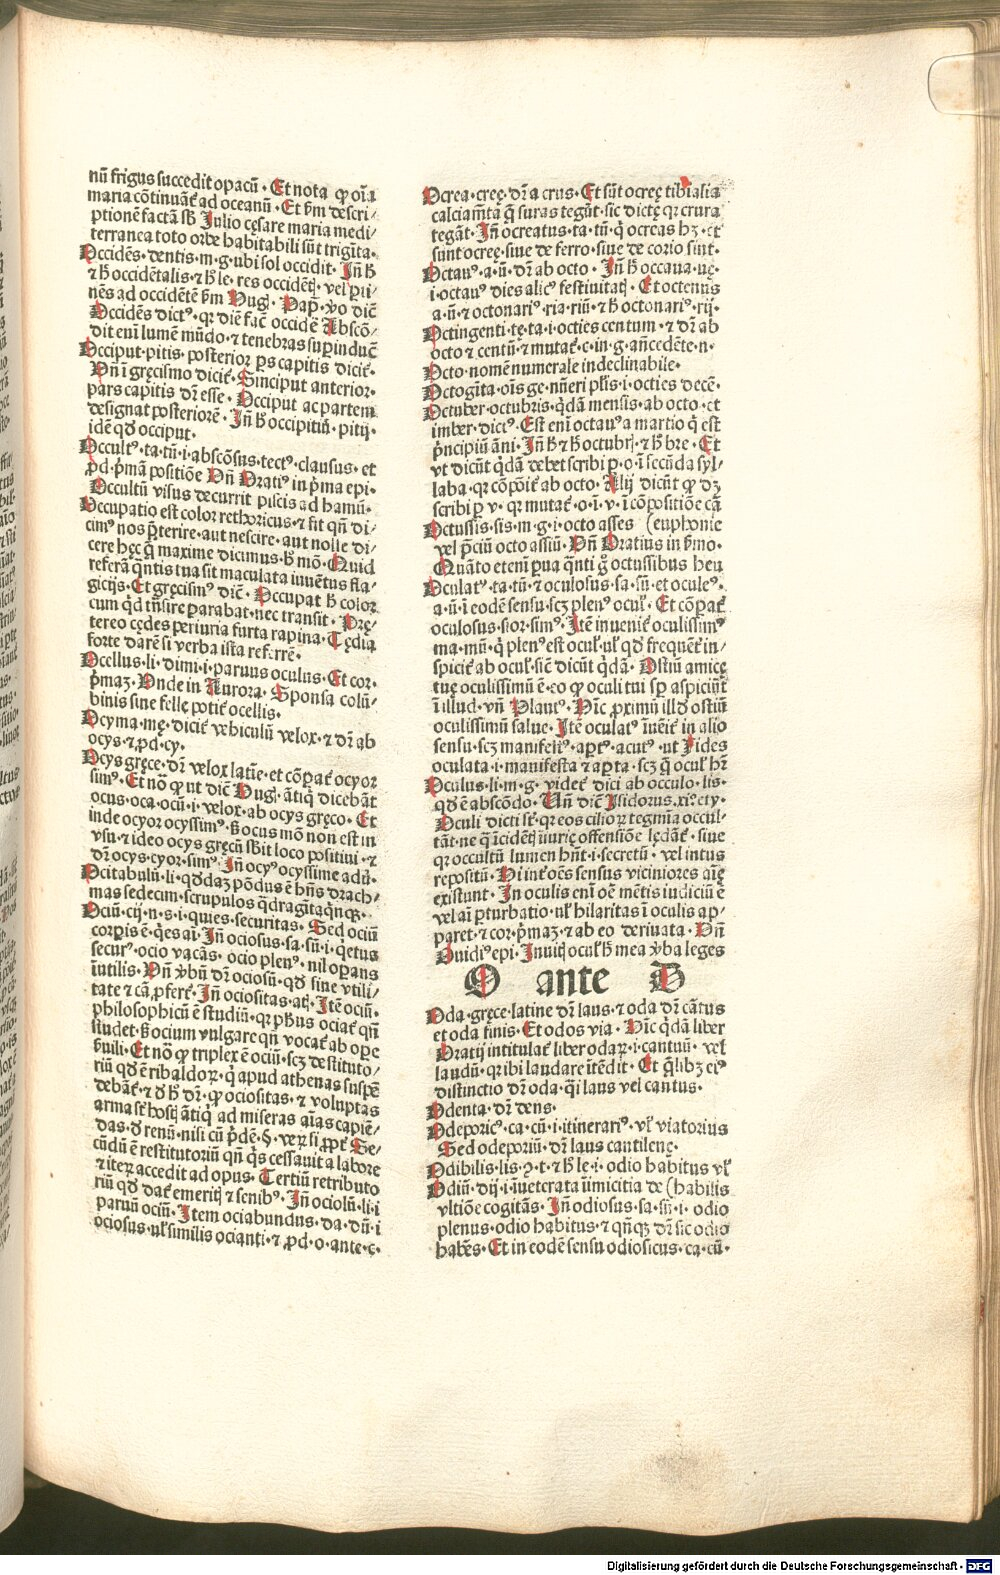 nū frigus succedit opacū. Et nota ꝙ oīa
maria cōtinuāt̄ ad oceanū. Et ẜm descri/
ptionē factā sb Julio cęsare maria medi/
terranea toto orbe habitabili sūt trigīta.
Occidēs. dentis. m. g. ubi sol occidit. Jn̄ ħ
⁊ ħ occidētalis. ⁊ ħ le. res
nēs ad occidētē ẜm Hug. Pap. ꝟo dic̄
Occidēs dictꝰ. qr diē fac̄ occidē Abscō/
dit eni lumē mūdo. ⁊ tenebras suꝑinduc̄
Occiput. pitis. posterior ꝑs capitis dicit̄.
Vn̄ ī gręcismo dicit̄. Sinciput anterior.
pars capitis dr̄ esse. Occiput ac partem
designat posteriorē. Jn̄ ħ occipitiū. pitij.
idē qđ occiput.
Occultꝰ. ta. tū. i. abscōsus. tectꝰ. clausus. et
ꝓd. p̄mā positiōe Vn̄ Oratiꝰ in p̄ma epi.
Occultū visus decurrit piscis ad hamū.
Occupatio est color rethoricus. ⁊ fit qn̄ di/
cimꝰ nos p̄terire. aut nescire. aut nolle di/
cere hęc q̄ maxime dicimus. ħ mō. Quid
referā q̄ntis tua sit maculata iuuētus fla/
gicijs. Et gręcismꝰ dic̄. Occupat ħ color
cum qđ trāsire parabat. nec transit. Prę/
tereo cędes periuria furta rapina. Tędia
forte darē si verba ista referrē.
Ocellus. li. dimi. i. paruus oculus. Et cor.
p̄maꝫ. Vnde in Aurora. Sponsa colū/
binis sine felle potit̄ ocellis.
Ocyma. mę. dicit̄ vehiculū velox. ⁊ dr̄ ab
ocys. ⁊ ꝓd. cy.
Ocys gręce. dr̄ velox latīe. et cōꝑat̄ ocyor
simꝰ. Et nō ꝙ ut dic̄ Hug. ātiq̄ dicebāt
ocus. oca. ocū. i. velox. ab ocys gręco. Et
inde ocyor ocyssimꝰ. ẞ ocus mō non est in
vsu. ⁊ ideo ocys gręcū sbit loco positiui. ⁊
dr̄ ocys. cyor. simꝰ. Jn̄ ocyꝰ ocyssime adū.
Ocitabulū. li. qđdaꝫ pōdus ē hn̄s drach/
mas sedecim. scrupulos q̄dragītaq̄nqꝫ.
Ociū. cij. n. s. i. quies. securitas. Sed ociū
corꝑis ē. q̄es aī. Jn̄ ociosus. sa. sū. i. q̄etus
securꝰ. ocio vacās. ocio plenꝰ. nil oꝑans
īutilis. Vn̄ ꝟbū dr̄ ociosū. qđ sine vtili/
tate ⁊ cā ꝓfert̄. Jn̄ ociositas. Jtē ociū.
philosophicū ē studiū. qr phūs ociat̄ qn̄
studet. ẞ ocium vulgare qn̄ vocat̄ ab oꝑe
ẜuili. Et nō ꝙ triplex ē ociū. scꝫ destituto/
riū qđ ē ribaldoꝝ. q̄ apud athenas suspē
debāt̄. ⁊ đ ħ dr̄. ꝙ ociositas. ⁊ voluptas
arma āt̄q̄ ad miseras aīas capiē/
das. đ renū. nisi cū p̄đe. Se/
cūdū ē restitutoriū qn̄ q̄s cessauit a labore
⁊ iteꝝ accedit ad opus. Tertiū retributo
riū qđ dat̄ emeritꝭ ⁊ senibꝰ. Jn̄ ociolū. li. i
paruū ociū. Jtem ociabundus. da. dū. i
ociosus. uł similis ocianti. ⁊ ꝓd. o. ante. c.
Ocrea. creę. dr̄ a crus. Et sūt ocreę tibialia
calciamēta q̄ suras tegūt. sic dictę qr crura
tegāt. Jn̄ ocreatus. ta. tū. q̄ ocreas hꝫ. et
sunt ocreę. siue de ferro. siue de corio sint.
Octauꝰ. a. ū. dr̄ ab octo. Jn̄ ħ octaua. uę.
i. octauꝰ dies alicꝰ festiuitatꝭ. Et octenus
a. ū. ⁊ octonariꝰ. ria. riū. ⁊ ħ octonariꝰ. rij.
Octingenti. tę. ta. i. octies centum. ⁊ dr̄ ab
octo ⁊ centū. ⁊ mutat̄. c. in. g. an̄cedēte. n.
Octo. nomē numerale indeclinabile.
Octogīta. oīs ge. nūeri pl̄is. i. octies decē.
Octuber. octubris. q̄dā mensis. ab octo. et
imber. dictꝰ. Est eni octauꝰ a martio q̄ est
p̄ncipiū āni. Jn̄ ħ ⁊ ħ octubrꝭ. ⁊ ħ bre. Et
vt dicūt q̄dā debet scribi ꝑ. o. ī secūda syl/
laba. qr cōꝑoīt̄ ab octo. Alij dicūt ꝙ dꝫ
scribi ꝑ v. qr mutat̄. o. i. v. ī cōpositiōe cā
Octussis. sis. m. g. i. octo asses (euphonie
vel p̄ciū octo assiū. Vn̄ Oratius in ẜmo.
Quāto etení parua q̄nti ergo octussibus heu
Oculatꝰ. ta. tū. ⁊ oculosus. sa. sū. et oculeꝰ.
a. ū. i eodē sensu. scꝫ plenꝰ ocuł. Et cōꝑat̄
oculosus. sior. simꝰ. Jtē inuenit̄ oculissimꝰ
ma. mū. q̄ plenꝰ est ocuł. uł qđ frequēt̄ in/
spicit̄ ab ocuł. siē dicūt q̄dā. Ostiū amicę
tuę oculissimū ē. eo ꝙ oculi tui sꝑ aspiciūt
ī illud. vn̄ Plautꝰ. Hic proximū illđ ostiū
oculissimū salue. Jtē oculatꝰ īueīt̄ in alio
sensu. scꝫ manifestꝰ. aꝑtꝰ. acutꝰ. ut Fides
oculata. i. manifesta ⁊ aꝑta. scꝫ q̄ ocuł hr̄
Oculus. li. m. g. videt̄ dici ab occulo. lis.
qđ ē abscōdo. Vn̄ dic̄ Jsidorus. xi? ety.
Oculi dicti sūt. qr eos cilioꝝ tegmīa occul/
tāt. ne q̄ īcidētꝭ īiurię offensiōe lędāt̄. siue
qr occultū lumen hn̄t. i. secretū. vel intus
repositū. Hi int̄ oēs sensus viciniores aīę
existunt. Jn oculis eni oē mētis iudiciū ē
vel aī ꝑturbatio. uł hilaritas ī oculis ap/
paret. ⁊ cor. p̄maꝫ. ⁊ ab eo deriuata. Vn̄
Ouidiꝰ epi. Jnuitꝭ ocuł ħ mea ꝟba leges
O ante D
Oda. gręce. latine dr̄ laus. ⁊ oda dr̄ cātus
et oda finis. Et odos via. Hic q̄dā liber
Oratij intitulat̄ liber odaꝝ. i. cantuū. vel
laudū. qr ibi laudare ītēdit. Et q̄libꝫ eiꝰ
distinctio dr̄ oda. q̄i laus vel cantus.
Odenta. dr̄ dens.
Odeporicꝰ. ca. cū. i. itinerariꝰ. uł viatorius
Sed odeporiū. dr̄ laus cantilenę.
Odibilis. lis. ꝯ. t. ⁊ ħ le. i. odio habitus uł
Odiū. dij. i. īueterata īimicitia de (habilis
vltiōe cogitās. Jn̄ odiosus. sa. sū. i. odio
plenus. odio habitus. ⁊ qn̄qꝫ dr̄ sic odio
habēs. Et in eodē sensu odiosicus. ca. cū.
Digitalisierung gefördert durch die Deutsche Forschungsgemeinschaft - DFG